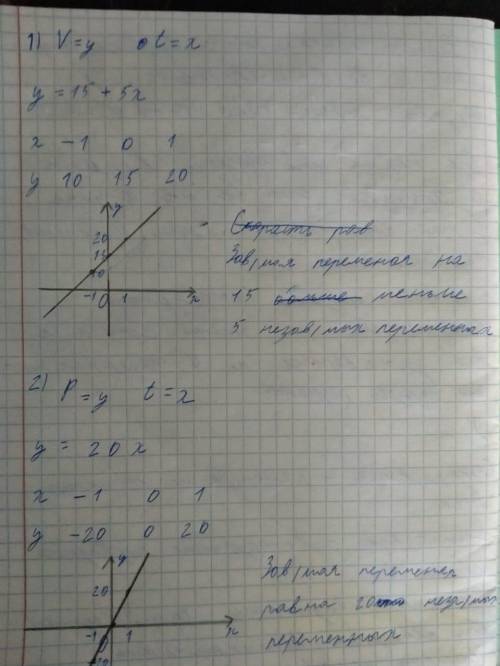 1) V=y t=x
y = 15 + 5x
x -1 0 1
y 10 15 20
y
20
15
10
-1 0 1 x
Скорость рав
Зав/мая переменая на
15 больше меньше
5 незав/мых переменных
2) P=y t=x
y = 20x
x -1 0 1
y -20 0 20
y
20
-1 0 1 x
-20
Зав/мая переменая
равна 20 незав/мых
переменных